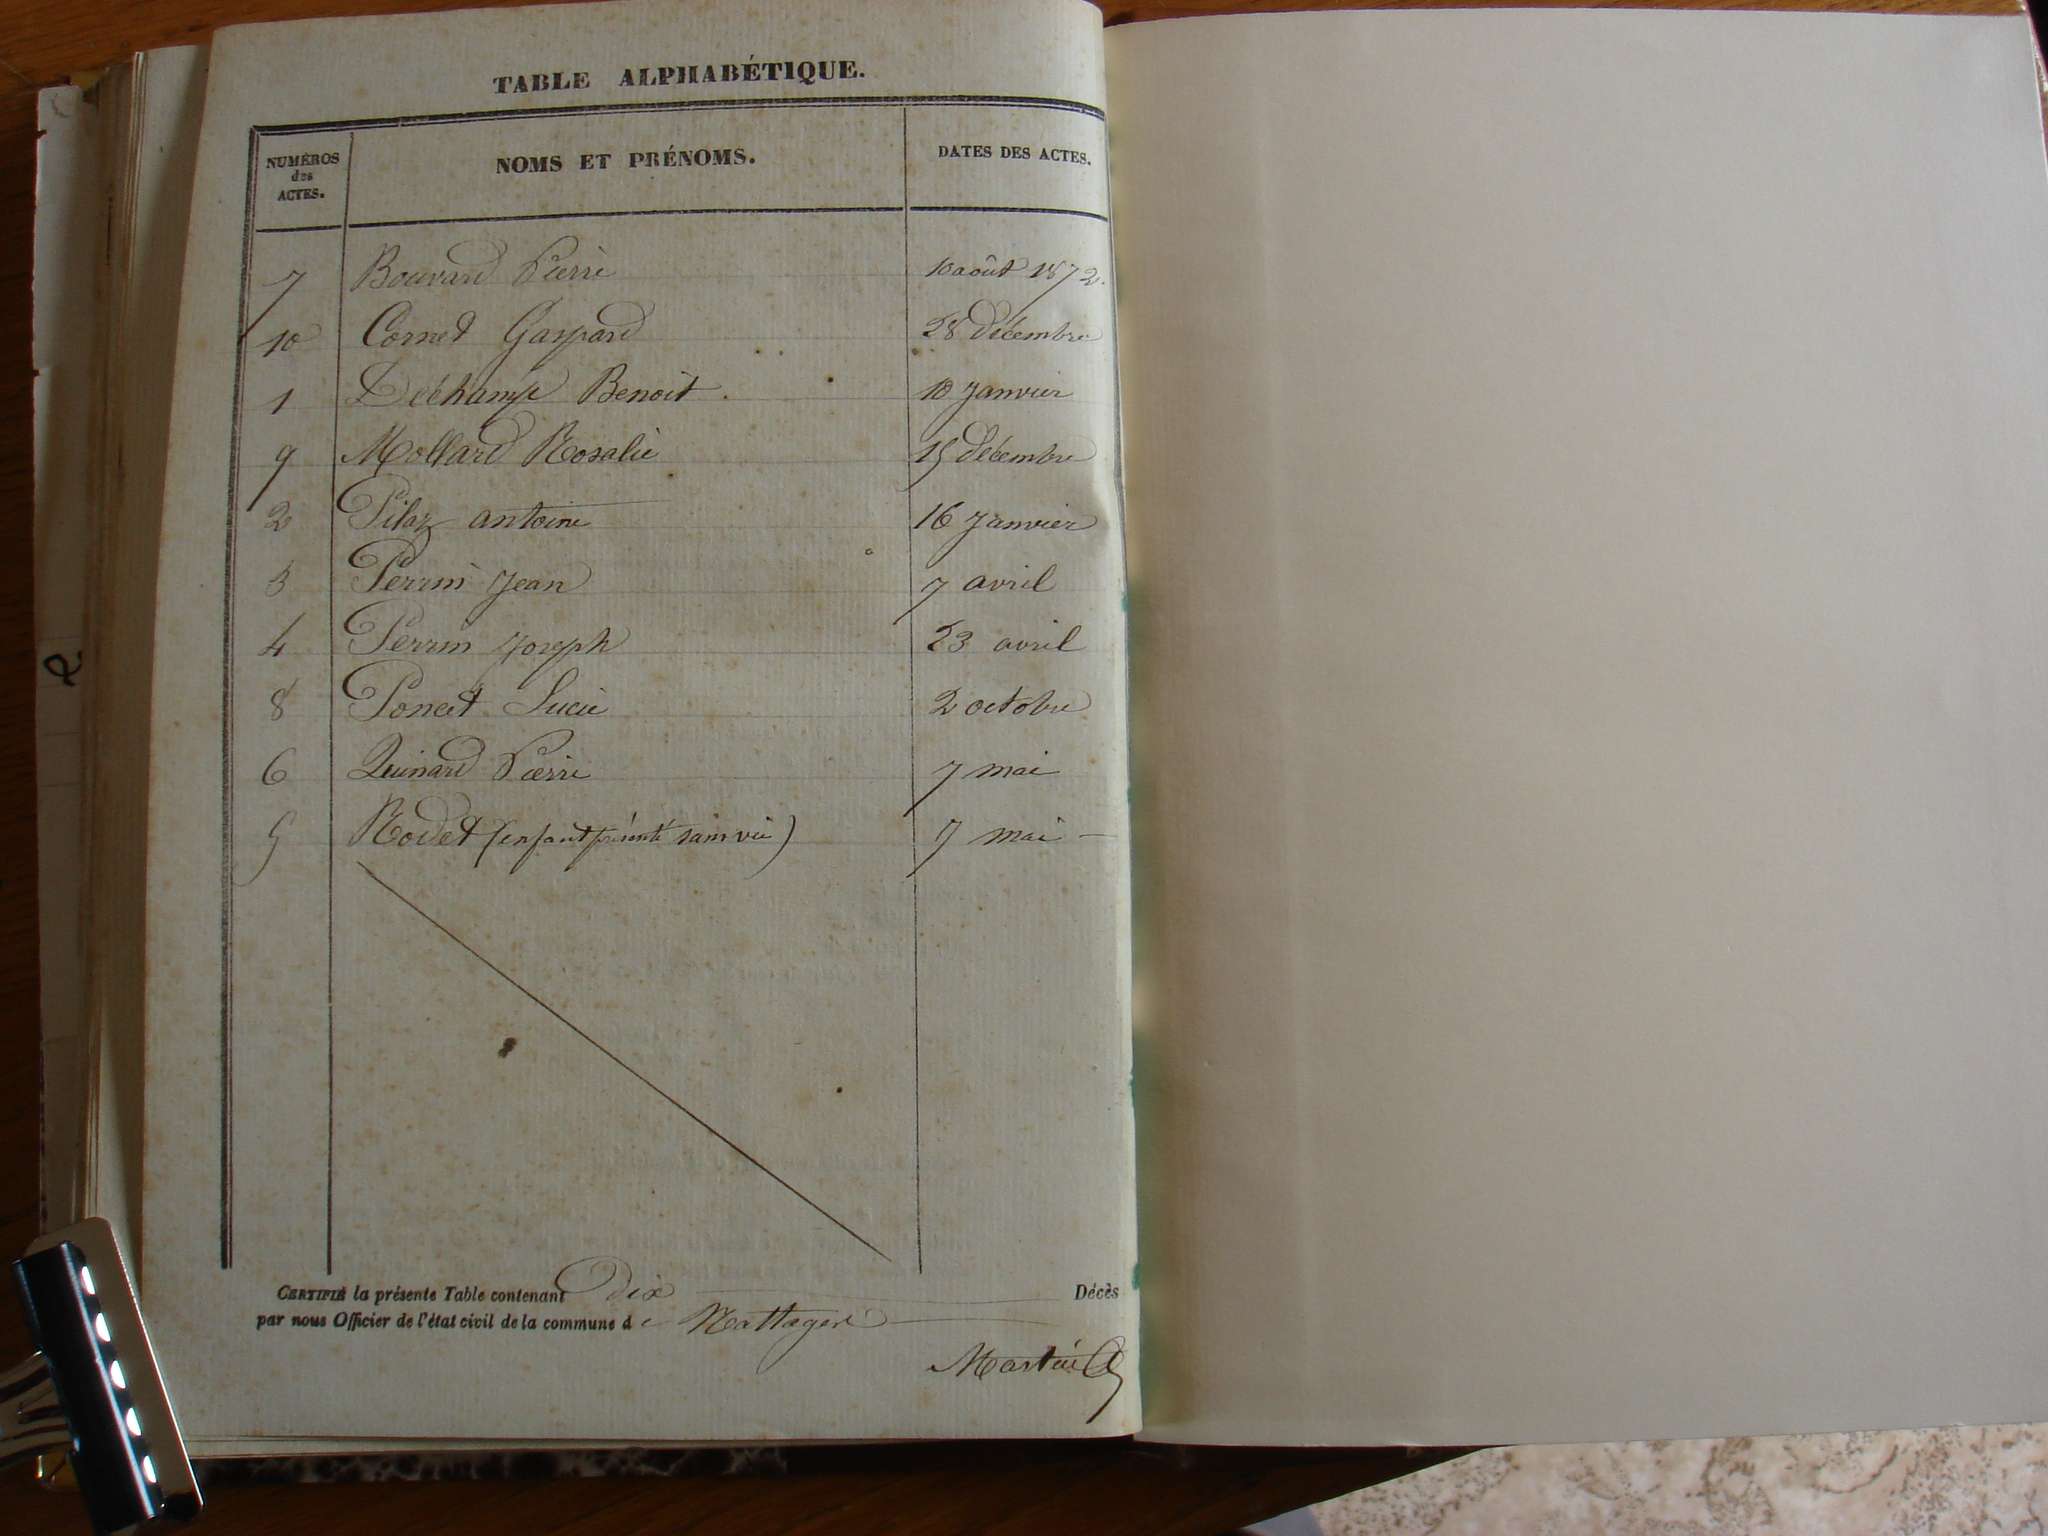 TABLE ALPHABÉTIQUE.
NUMÉROS des ACTES. NOMS ET PRÉNOMS. DATES DES ACTES.
7 Bouvard Pierre 10 août 1872.
10 Cornet Gaspard 28 décembre
1 Déchamp Benoit 10 Janvier
9 Mollard Rosalie 15 décembre
2 Pilaz antoine 16 Janvier
3 Perrin Jean 7 avril
4 Perrin Joseph 23 avril
8 Poncet Lucie 2 octobre
6 Quinard Pierre 7 mai
5 Rodet (enfant présenté sans vie) 7 mai
CERTIFIÉ la présente Table contenant Dix Décès
par nous Officier de l'état civil de la commune de Nattages
Martin